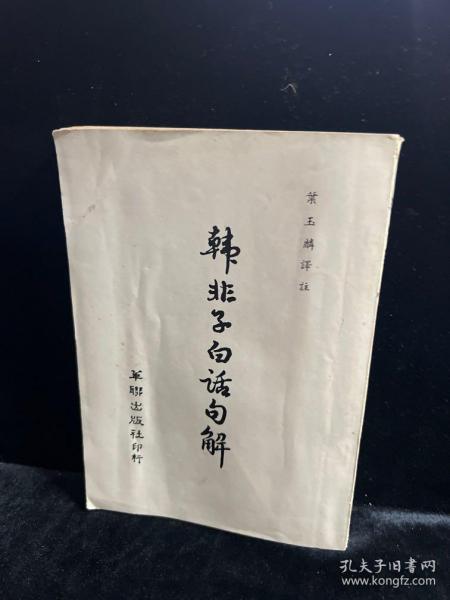 葉玉麟譯註
韩非子白话句解
華聯出版社印行
孔夫子旧书网
www.kongfz.com